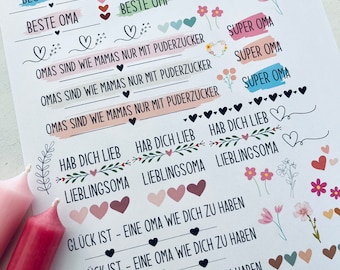 BESTE OMA
BESTE OMA
SUPER OMA
OMAS SIND WIE MAMAS NUR MIT PUDERZUCKER
SUPER OMA
OMAS SIND WIE MAMAS NUR MIT PUDERZUCKER
SUPER OMA
OMAS SIND WIE MAMAS NUR MIT PUDERZUCKER
HAB DICH LIEB HAB DICH LIEB HAB DICH LIEB
LIEBLINGSOMA LIEBLINGSOMA LIEBLINGSOMA
GLÜCK IST - EINE OMA WIE DICH ZU HABEN
GLÜCK IST - EINE OMA WIE DICH ZU HABEN